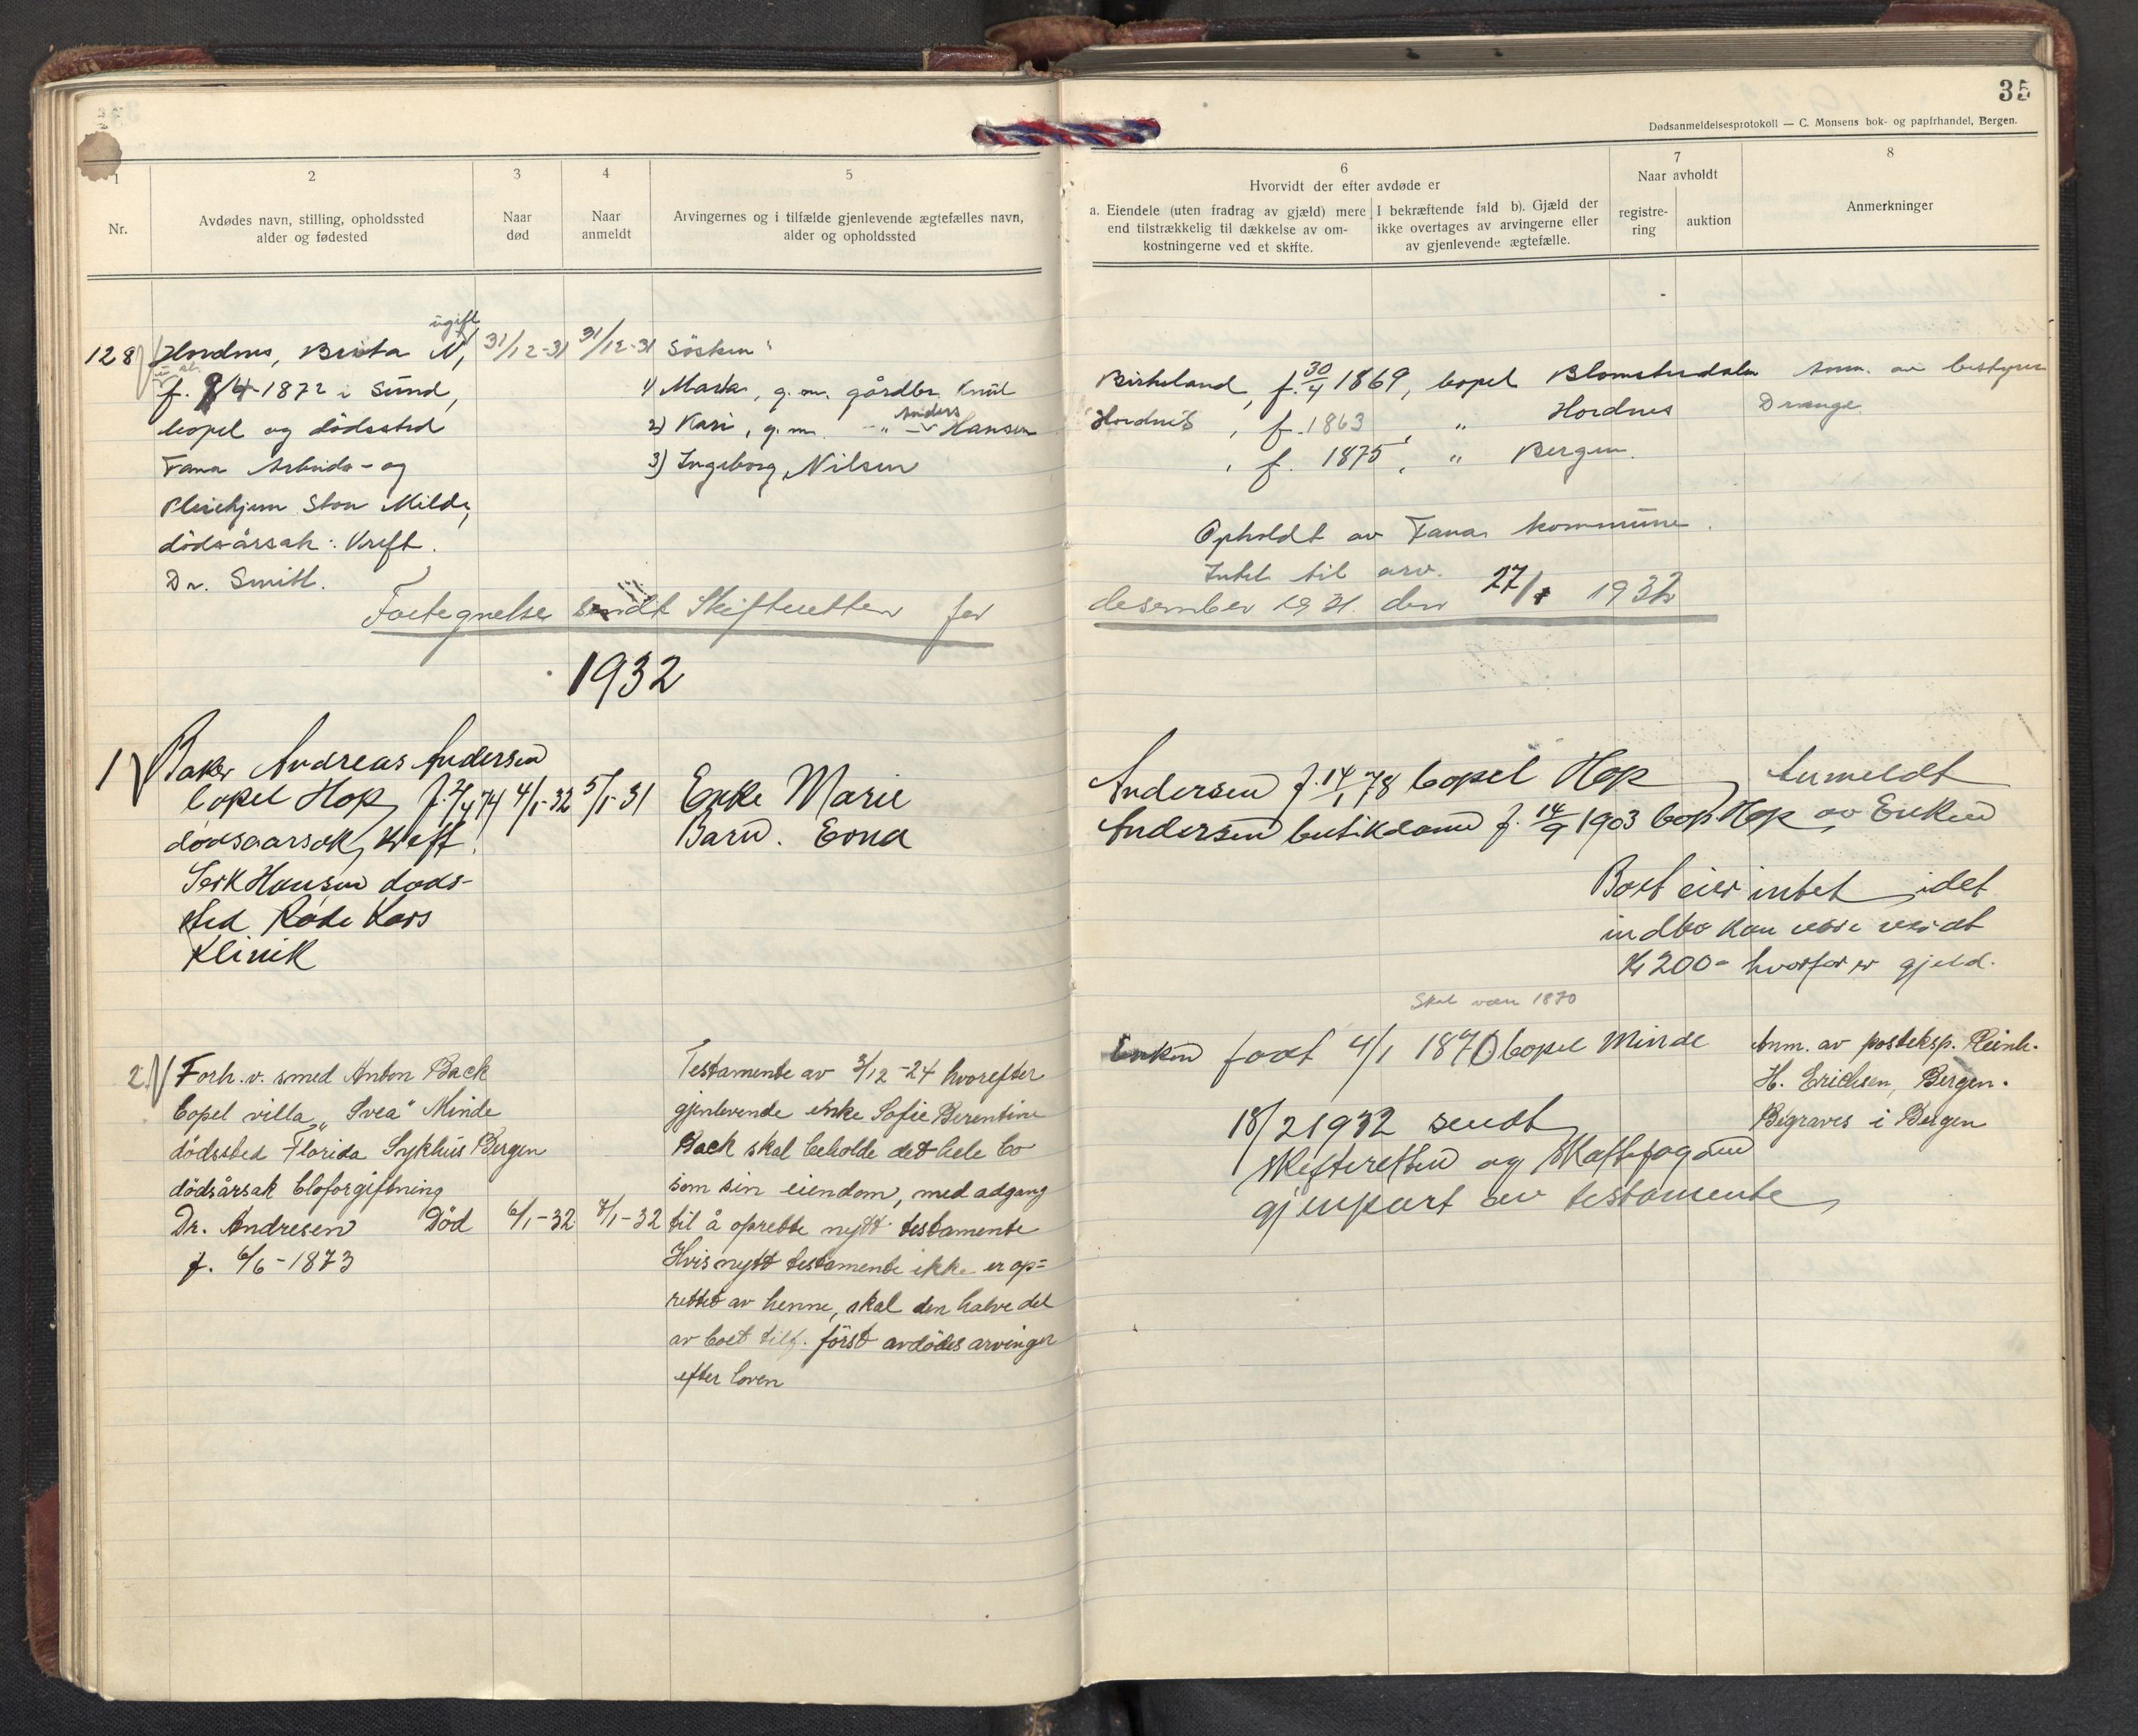 35
Dødsanmeldelsesprotokoll — C. Monsens bok- og papirhandel, Bergen.
1
Nr.
2
Avdødes navn, stilling, opholdssted
alder og fødested
3
Naar
død
4
Naar
anmeldt
5
Arvingernes og i tilfælde gjenlevende ægtefælles navn,
alder og opholdssted
6
Hvorvidt der efter avdøde er
a. Eiendele (uten fradrag av gjæld) mere
end tilstrækkelig til dækkelse av om-
kostningerne ved et skifte.
I bekræftende fald b). Gjæld der
ikke overtages av arvingerne eller
av gjenlevende ægtefælle.
7
Naar avholdt
registre-
ring
auktion
8
Anmerkninger
ugift
128 Hordnes, Brita N, 31/12-31 31/12-31 Søsken:
f. /4-1872 i Sund,
bopel og dödssted
Fana Arbeids- og
Pleiehjem Store Milde,
dödsårsak: Kreft.
Dr. Smith.
1) Marta, g. m. gårdbr. Knut
2) Kari, g. m. -"- Anders Hansen
3) Ingeborg, Nilsen
Birkeland, f. 30/4 1869, bopel Blomsterdalen Anm. av bestyrer
Hordnes, f. 1863, " Hordnes Drange
, f. 1875, " Bergen.
Opholdt av Fana kommune.
Intet til arv.
Fortegnelse sendt Skifteretten for
desember 1931. den 27/1 1932
1932
1) Baker Andreas Andersen
bopel Hop, f. 2/4 74 4/1-32 5/1-31 Enke Marie
dødsaarsak, Kreft. Barn. Erna
Hansen døds-
sted Røde Kors
Klinik
Andersen f. 14/1 78 bopel Hop, Anmeldt
Andersen butikdame f. 14/9 1903 bop Hop av Enken
Boet eier intet idet
indbo kan være verdt
Kr 200- hvorfor er gjeld.
Skal være 1870
2) Forh.v. smed Anton Back
bopel villa "Svea" Minde
dödssted Florida Sykhus Bergen
dödsårsak bloforgiftning
Dr. Andresen Död 6/1-32 7/1-32
f. 6/6-1873
Testamente av 3/12-24 hvorefter
gjenlevende enke Sofie Berentine
Back skal beholde det hele bo
som sin eiendom, med adgang
til å oprette nytt testamente
Hvis nytt testamente ikke er op=
rettet av henne, skal den halve del
av boet tilf. först avdödes arvinger
efter loven
Enken født 4/1 1870 bopel Minde
18/2 1932 sendt
Skifteretten og Skattefogden
gjenpart av testamente
Anm. av posteksp. Reinh.
H. Erichsen, Bergen.
Begraves i Bergen